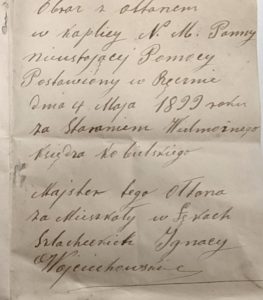 Obraz z ołtarzem
w kaplicy N. M. Panny
nieustającej Pomocy
Postawiony w Ręcznie
dnia 4 Maja 1899 roku
za Staraniem Wielmożnego
Księdza Kobielskiego
Majster tego Ołtarza
za Mieszkały w Łękach
Szlacheckich Ignacy
Wojciechowski